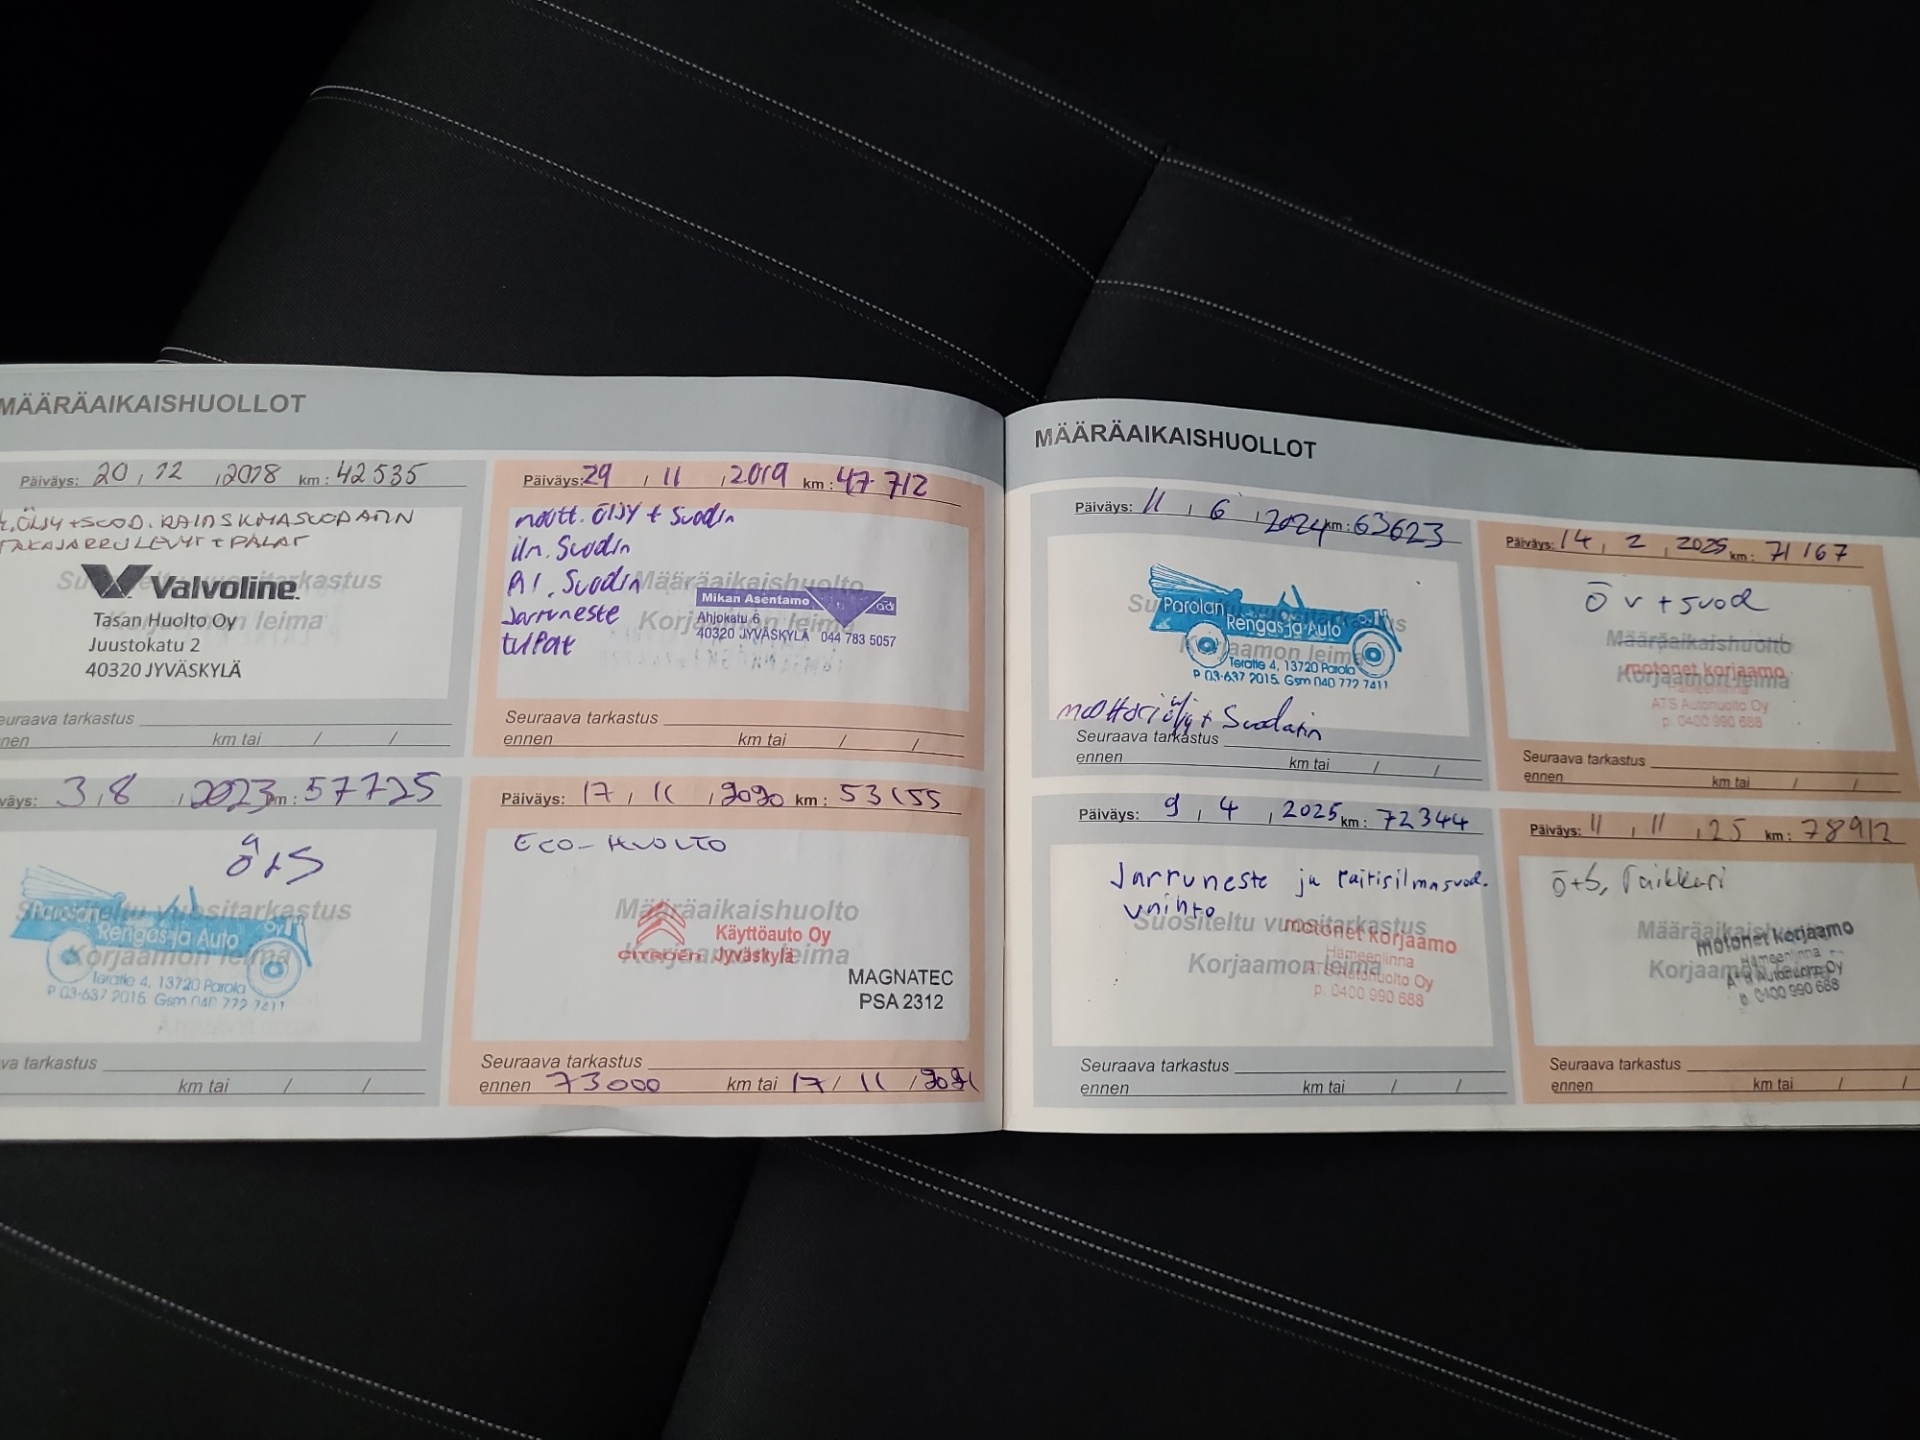 MÄÄRÄAIKAISHUOLLOT
Päiväys: 20 . 12 . 2018 km: 42535
ÖLJY + SUOD. RAITISILMASUODATIN
TAKAJARRULEVYT + PALAT
Suositeltu vuositarkastus
Korjaamon leima
Valvoline
Tasan Huolto Oy
Juustokatu 2
40320 JYVÄSKYLÄ
euraava tarkastus
nen km tai / /
Päiväys: 29 . 11 . 2019 km: 47 712
moott. öljy + Suodin
iln. Suodin
Suodin
Jarruneste
tulpat
Määräaikaishuolto
Korjaamon leima
Mikan Asentamo
ad
Ahjokatu 6
40320 JYVÄSKYLÄ 044 783 5057
Seuraava tarkastus
ennen km tai / /
väys: 3.8 . 2023 km: 57725
ö+S
Suositeltu vuositarkastus
Korjaamon leima
Parolan
Rengas ja Auto Oy
Teratie 4, 13720 Parola
P 03-637 2015. Gsm 040 772 7411
va tarkastus
km tai / /
Päiväys: 17 . 11 . 2020 km: 53155
ECO-HUOLTO
Määräaikaishuolto
Korjaamon leima
CITROËN
Käyttöauto Oy
Jyväskylä
MAGNATEC
PSA 2312
Seuraava tarkastus
ennen 73000 km tai 17 / 11 / 2021
MÄÄRÄAIKAISHUOLLOT
Päiväys: 11 . 6 . 2024 km: 63623
Suositeltu vuositarkastus
Korjaamon leima
Parolan
Rengas ja Auto Oy
Teratie 4, 13720 Parola
P 03-637 2015. Gsm 040 772 7411
moottoriöljy + Suodatin
Seuraava tarkastus
ennen km tai / /
Päiväys: 14 . 2 . 2025 km: 71167
ö v + suod
Määräaikaishuolto
Korjaamon leima
motonet korjaamo
Hämeenlinna
ATS Autohuolto Oy
p. 0400 990 688
Seuraava tarkastus
ennen km tai / /
Päiväys: 9 . 4 . 2025 km: 72344
Jarruneste ja raitisilmasuod.
vaihto
Suositeltu vuositarkastus
Korjaamon leima
motonet korjaamo
Hämeenlinna
ATS Autohuolto Oy
p. 0400 990 688
Seuraava tarkastus
ennen km tai / /
Päiväys: 11 . 11 . 25 km: 78912
ö+s, Raikkari
Määräaikaishuolto
Korjaamon leima
motonet korjaamo
Hämeenlinna
ATS Autohuolto Oy
p. 0400 990 688
Seuraava tarkastus
ennen km tai / /